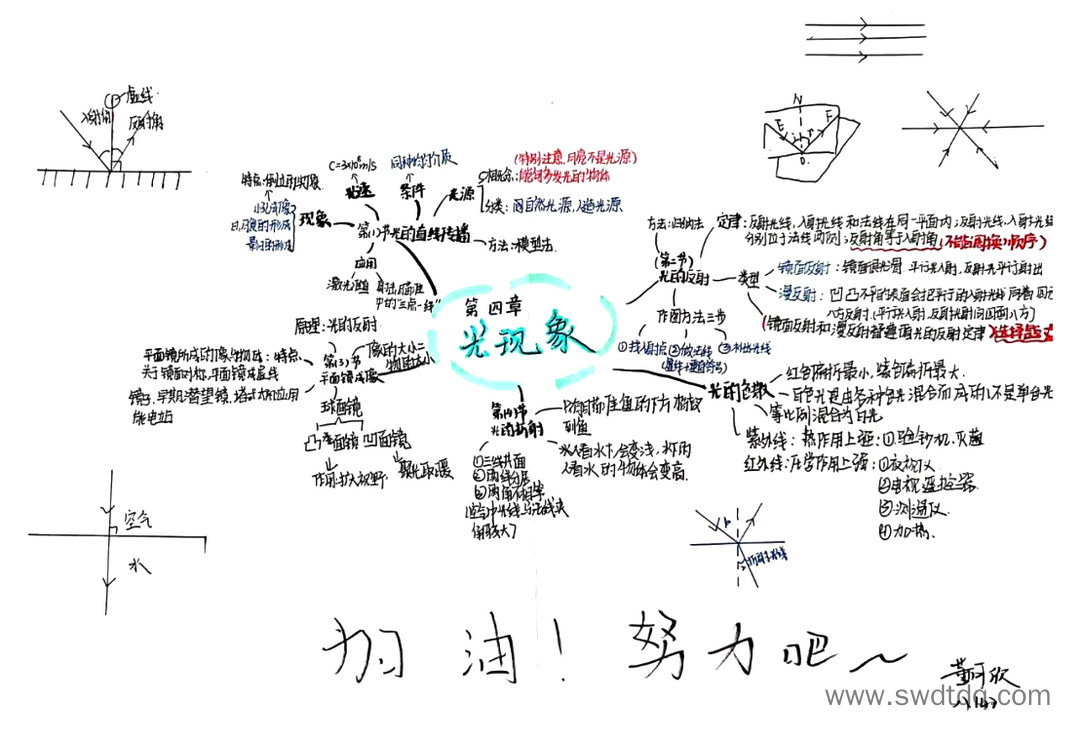 虚线
入射角
反射角
N
E
F
i
r
O
C=3×10⁸m/s
光速
同种均匀介质
条件
光源
(特别注意,月亮不是光源)
概念:能够发光的物体
分类:自然光源,人造光源
特点:倒立的实像
小孔成像
日,月食的形成
影子的形成
现象
第(1)节光的直线传播
方法:模型法
应用
激光准直
中的"三点一线"
第四章
光现象
方法:归纳法
(第二节)
光的反射
定律:反射光线,入射光线和法线在同一平面内;反射光线,入射光线
分别位于法线两侧;反射角等于入射角(不能调换顺序)
类型
镜面反射:镜面很光滑.平行光入射,反射光平行射出
漫反射:凹凸不平的表面会把平行的入射光线向着四
八方反射.
(镜面反射和漫反射都遵循光的反射定律)
作图方法三步
①找入射点
②做法线
③补出光线
原理:光的反射
第(3)节
平面镜成像
像的大小=
物的大小
平面镜所成的像与物体:特点.
关于镜面对称,平面镜成虚像
镜子,早期潜望镜,塔式太阳能应用
球面镜
凸面镜
凹面镜
作用:扩大视野.
聚光取暖
第(4)节
光的折射
①三线共面
②两线分居
③两角不相等
光的色散
红色偏折最小,紫色偏折最大.
白色光是由各种色光混合而成的,不是单色光
等比例混合为白光
紫外线:
①验钞机,灭菌
红外线:
①夜视仪
②电视遥控器
③测温仪
④加热.
空气
水
加油!努力吧~
www.swdtdq.com